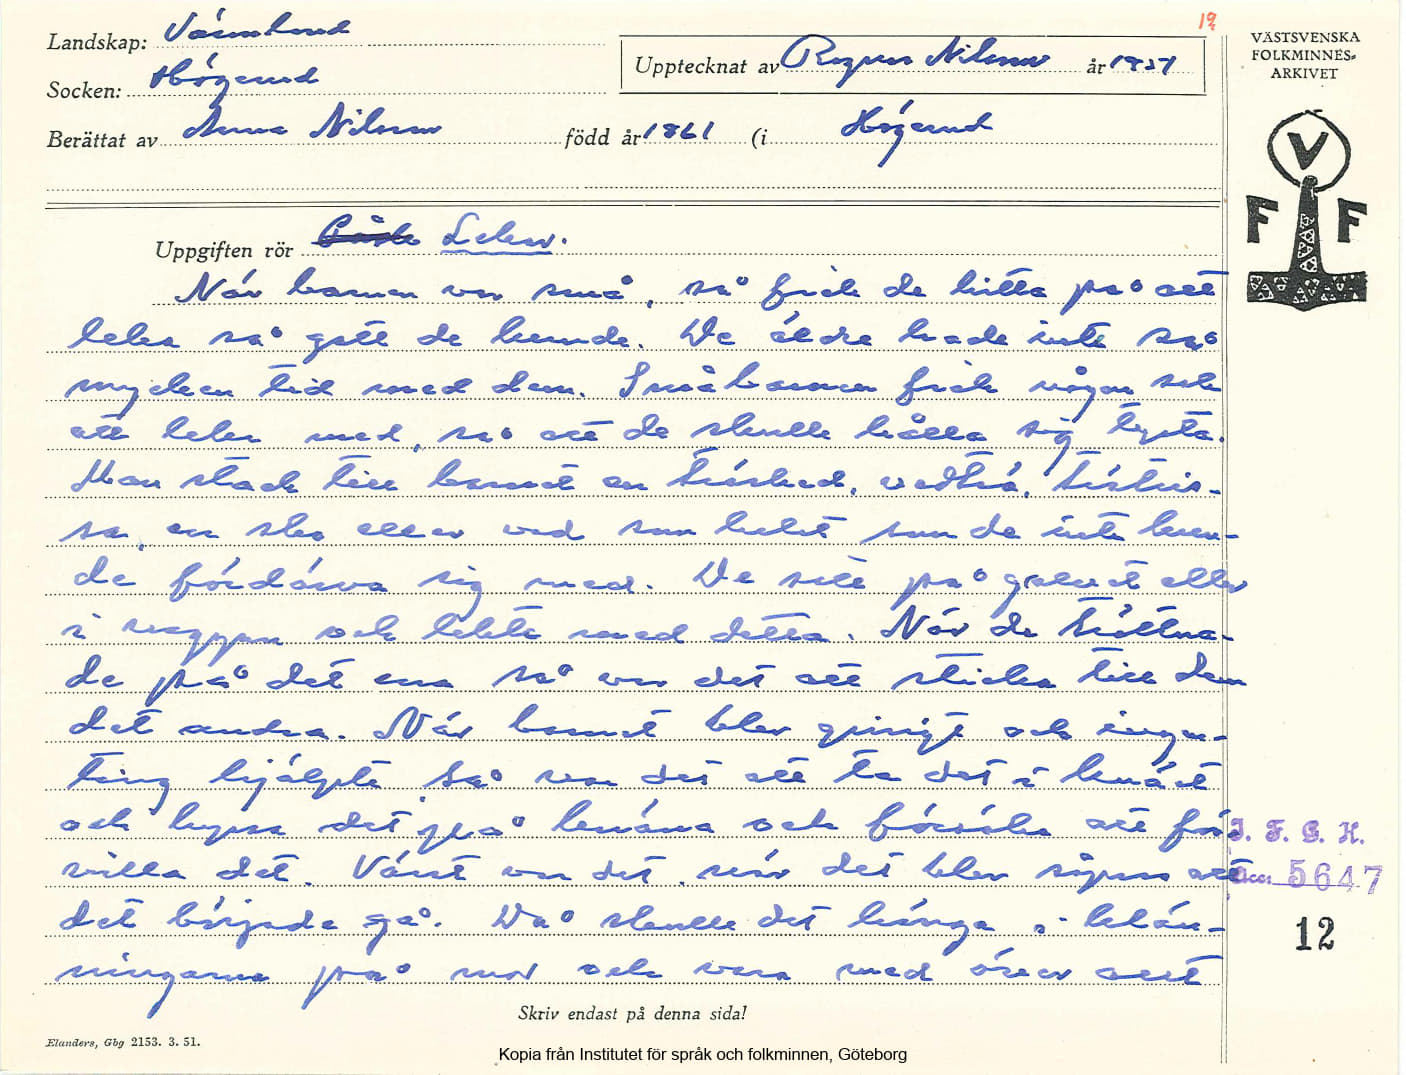 19/2
VÄSTSVENSKA
FOLKMINNES-
ARKIVET
V
F F
Landskap: Värmland
Upptecknat av Ragnar Nilsson år 1957
Socken: Högerud
Berättat av Anna Nilsson född år 1861 (i Högerud
Uppgiften rör Lekar.
När barnen var små, så fick de hitta på att
leka så gott de kunde. De äldre hade inte så
mycken tid med dem. Småbarnen fick någon sak
att leka med, så att de skulle hålla sig tysta.
Man stack till barnet en träsked, vedträ, trästic-
ka, en sko eller vad som helst som de inte kun-
de fördärva sig med. De satt på golvet eller
i vaggan och lekte med detta. När de tröttna-
de på det ena så var det att sticka till dem
det andra. När barnet blev grinigt och ingen-
ting hjälpte så var det att ta det i knäet
och gunga det på knäna och försöka att för-
villa det. Värst var det när det blev såpass att
det började gå. Då skulle det hänga i klän-
ningarna på mor och vara med över allt
J. F. G. H.
Acc: 5647
12
Skriv endast på denna sida!
Elanders, Gbg 2153. 3. 51.
Kopia från Institutet för språk och folkminnen, Göteborg